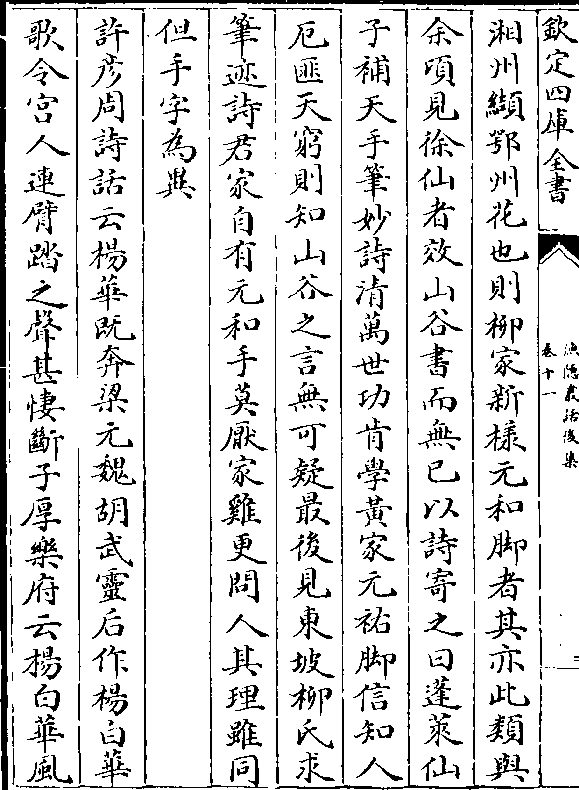 欽定四庫全書
漁隱叢話後集
卷十一
湘州纈鄂州花也則柳家新樣元和脚者其亦此類與
余頃見徐仙者效山谷書而無已以詩寄之曰蓬萊仙
子補天手筆妙詩清萬世功肯學黃家元祐脚信知人
厄匪天窮則知山谷之言無可疑最後見東坡柳氏求
筆迹詩君家自有元和手莫厭家雞更問人其理雖同
但手字為異
許彥周詩話云楊華既奔梁元魏胡武靈后作楊白華
歌令宫人連臂踏之聲甚悽斷子厚樂府云楊白華風